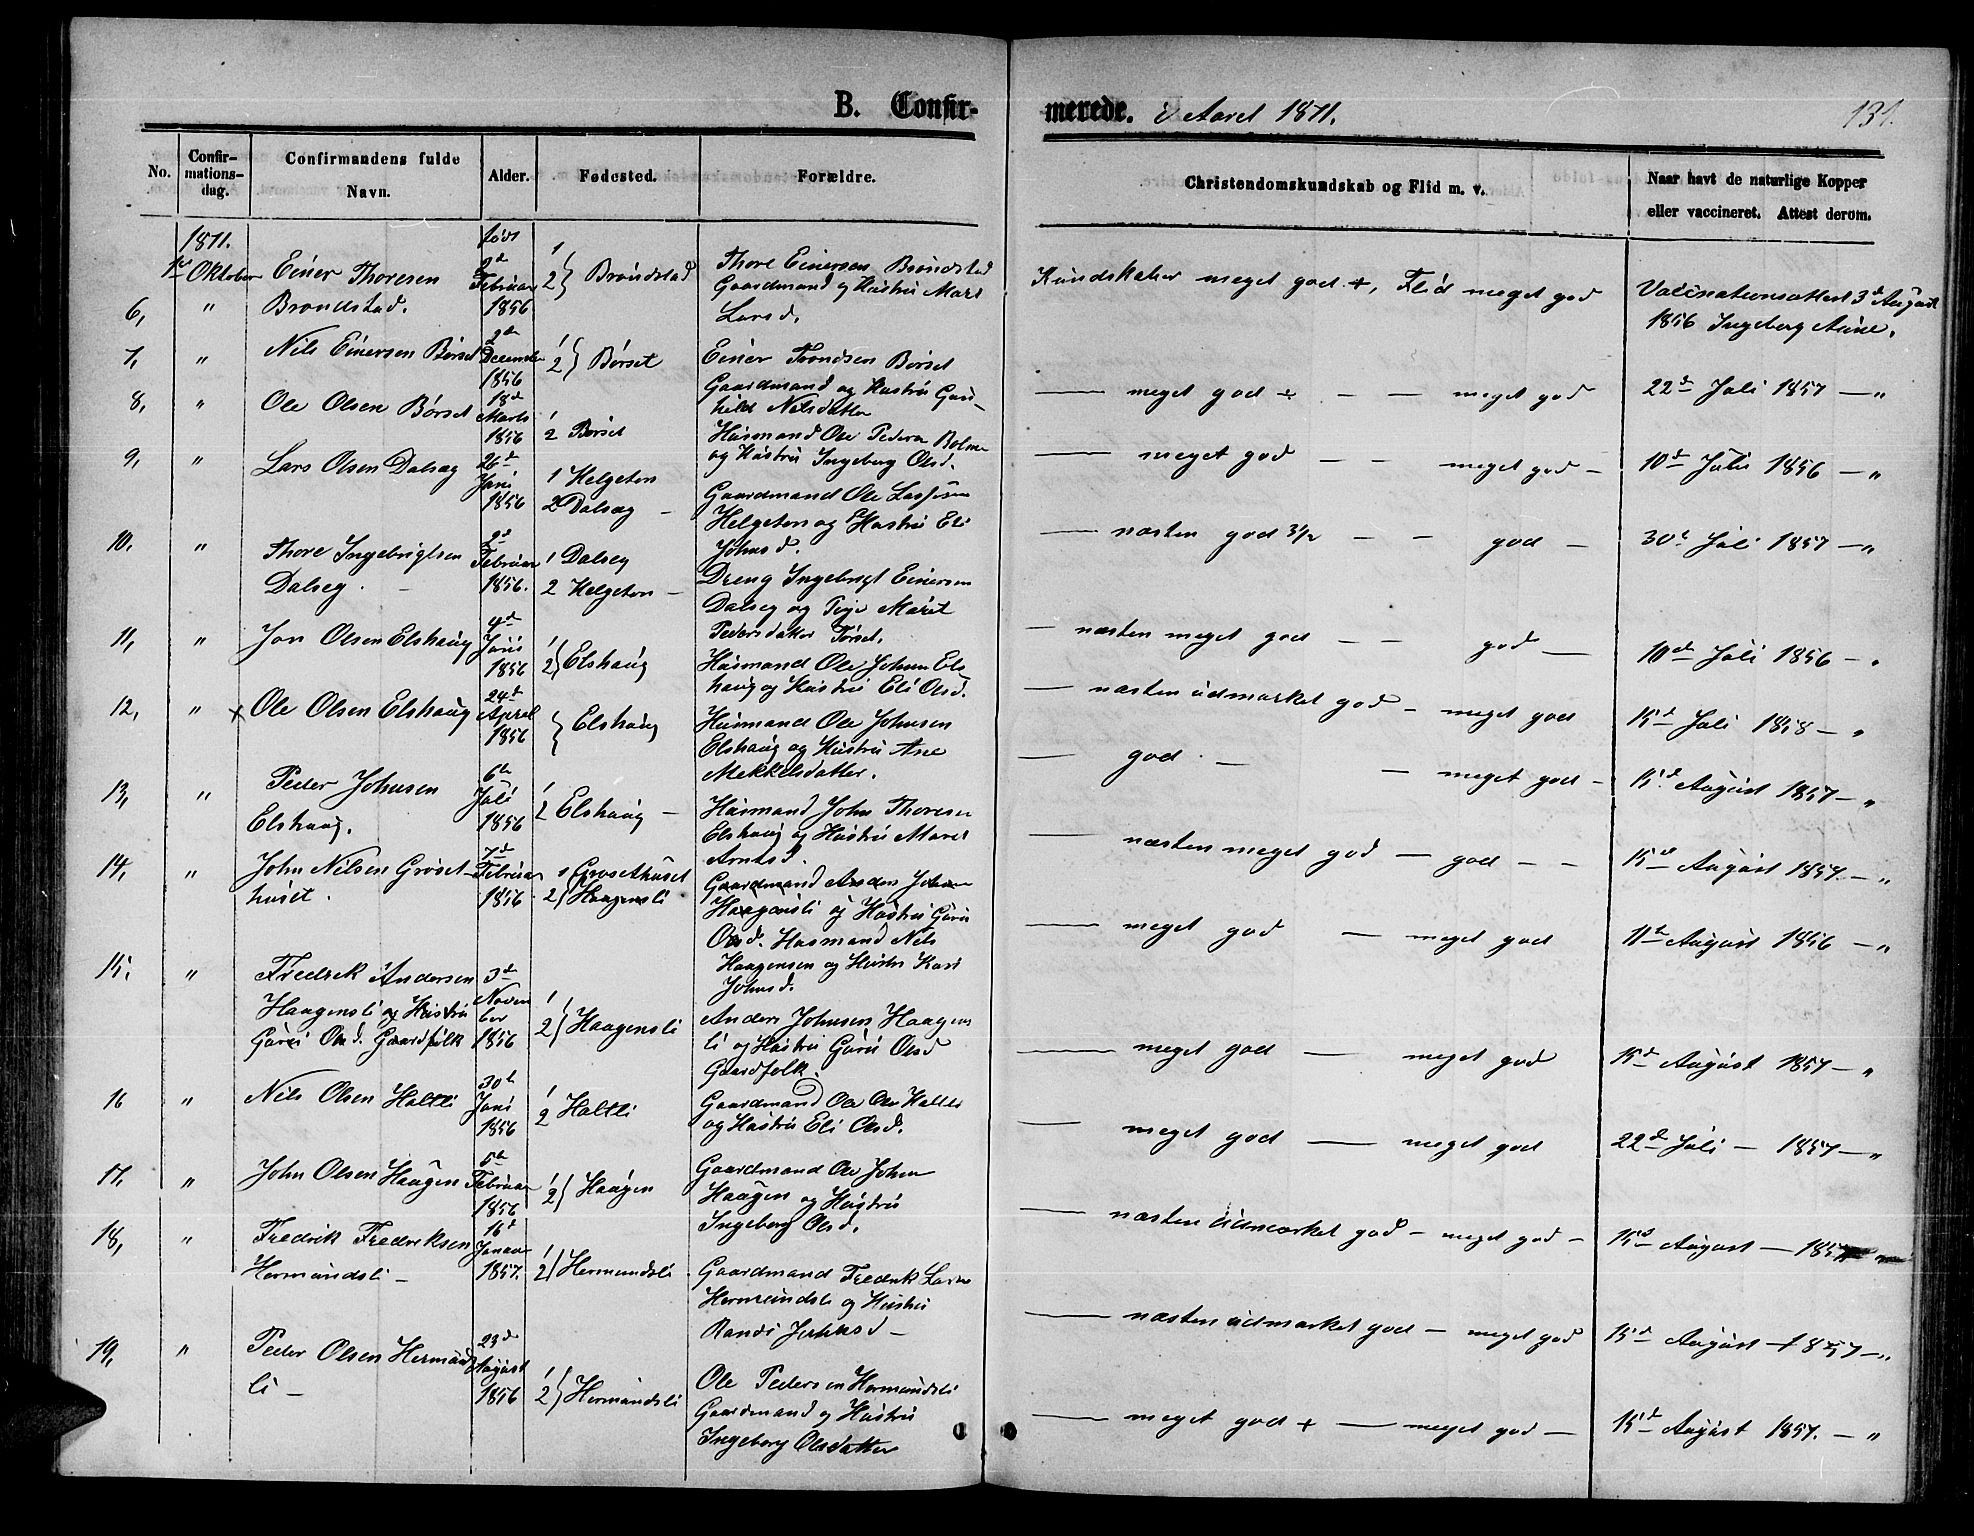 B. Confirmerede. i Aaret 1871.
131.
No.
Confirmationsdag.
Confirmandens fulde Navn.
Alder.
Fødested.
Forældre.
Christendomskundskab og Flid m. v.
Naar havt de naturlige Kopper eller vaccineret. Attest derom.
1871.
1ste Oktober
6, " Einer Thoresen Brøndstad.
født 2d Februar 1856
1 2 } Brøndstad
Thore Einersen Brøndstad
Gaardmand og Hustru Mari
Larsd.
Kundskaber meget god +, Flid meget god
Vaccinationsattest 3d August
1856 Ingeborg Aune.
7, " Nils Einersen Børset
2den December 1856
1 2 } Børset
Einer Trondsen Børset
Gaardmand og Hustru Gun-
hild Nilsdatter
— meget god + - — meget god
22d Juli 1857 — "
8, " Ole Olsen Børset
18d Marts 1856
1 2 Børset
Husmand Ole Peders Bolme
og Hustru Ingeborg Olsd.
— meget god — — meget god —
10d Juli 1856 — "
9, " Lars Olsen Dalsæg
26d Juni 1856
1 Helgeton
2 Dalsæg —
Gaardmand Ole Larssen
Helgeton og Hustru Eli
Johnsd.
— næsten god 3/2 — — god —
30d Juli 1857 — "
10, " Thore Ingebrigtsen
Dalseg. —
2d Februar 1856.
1 Dalseg
2 Helgeton —
Dreng Ingebrigt Einersen
Dalseg og Pige Marit
Pedersdatter Tørset.
— næsten meget god — — god —
10d Juli 1856 — "
11, " Jon Olsen Elshaug
4d Juni 1856
1 2 } Elshaug
Husmand Ole Johnsen Els
haug og Hustru Eli Olsd.
— næsten udmærket god — meget god
15d Juli 1858 — "
12, " x Ole Olsen Elshaug
24d April 1856
} Elshaug
Husmand Ole Johnsen
Elshaug og Hustru Ane
Mekkelsdatter.
— god. — — meget god —
15d. August 1857 — "
13, " Peder Johnsen
Elshaug.
6te Juli 1856
1 2 Elshaug —
Husmand John Thoresen
Elshaug og Hustru Marit
Arntsd.
— næsten meget god — god — —
15d August 1857. — "
14, " John Nilsen Grøset-
huset.
7d Februar 1856.
1 Grøsethuset
2 } Haagensli
Gaardmand Anders Johnsen
Haagensli og Hustru Guru
Olsd. Husmand Nils
Haagensen og Hustru Kari
Johnsd.
— meget god — meget god
11te August 1856 — "
15, " Fredrik Andersen
Haagensli og Hustru
Guru Olsd. Gaardfolk
3d November 1856
1 2 } Haagensli
Anders Johnsen Haagens
li og Hustru Guru Olsd
Gaardfolk.
— meget god — meget god
15d August 1857 — "
16 " Nils Olsen Holtli
30te Juni 1856
1 2 Holtli
Gaardmand Ole Ols Holtli
og Hustru Eli Olsd.
— meget god — meget god
22de Juli — 1857 — "
17, " John Olsen Haugen
5te Februar 1856
1 2 } Haugen
Gaardmand Ole Johnsen
Haugen og Hustru
Ingeborg Olsd.
— næsten udmærket god — meget god —
15d August — 1857 "
18, " Fredrik Fredriksen
Hermundsli —
16d Januar 1857.
1 2 } Hermundsli
Gaardmand Fredrik Larsen
Hermundsli og Hustru
Randi Johnsd —
— næsten udmærket god — meget god
15d August — 1857 — "
19, " Peder Olsen Hermunds
li —
23d August 1856
1 2 } Hermundsli
Ole Pedersen Hermundsli
Gaardmand og Hustru
Ingeborg Olsdatter
— meget god + — meget god —
15d August 1857. — "